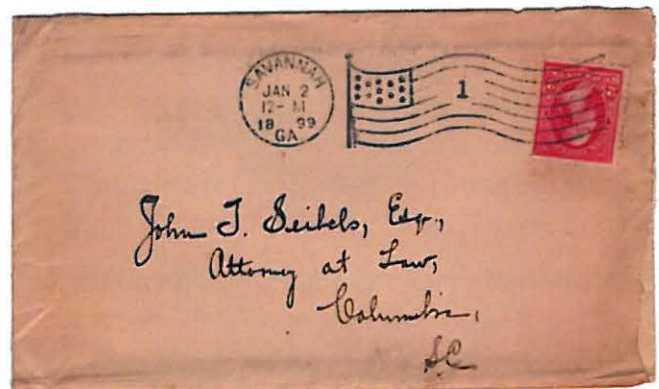 SAVANNAH
JAN 2
12- M
18 99
GA
1
John J. Seibels, Esqr.,
Attorney at Law,
Columbia,
SC